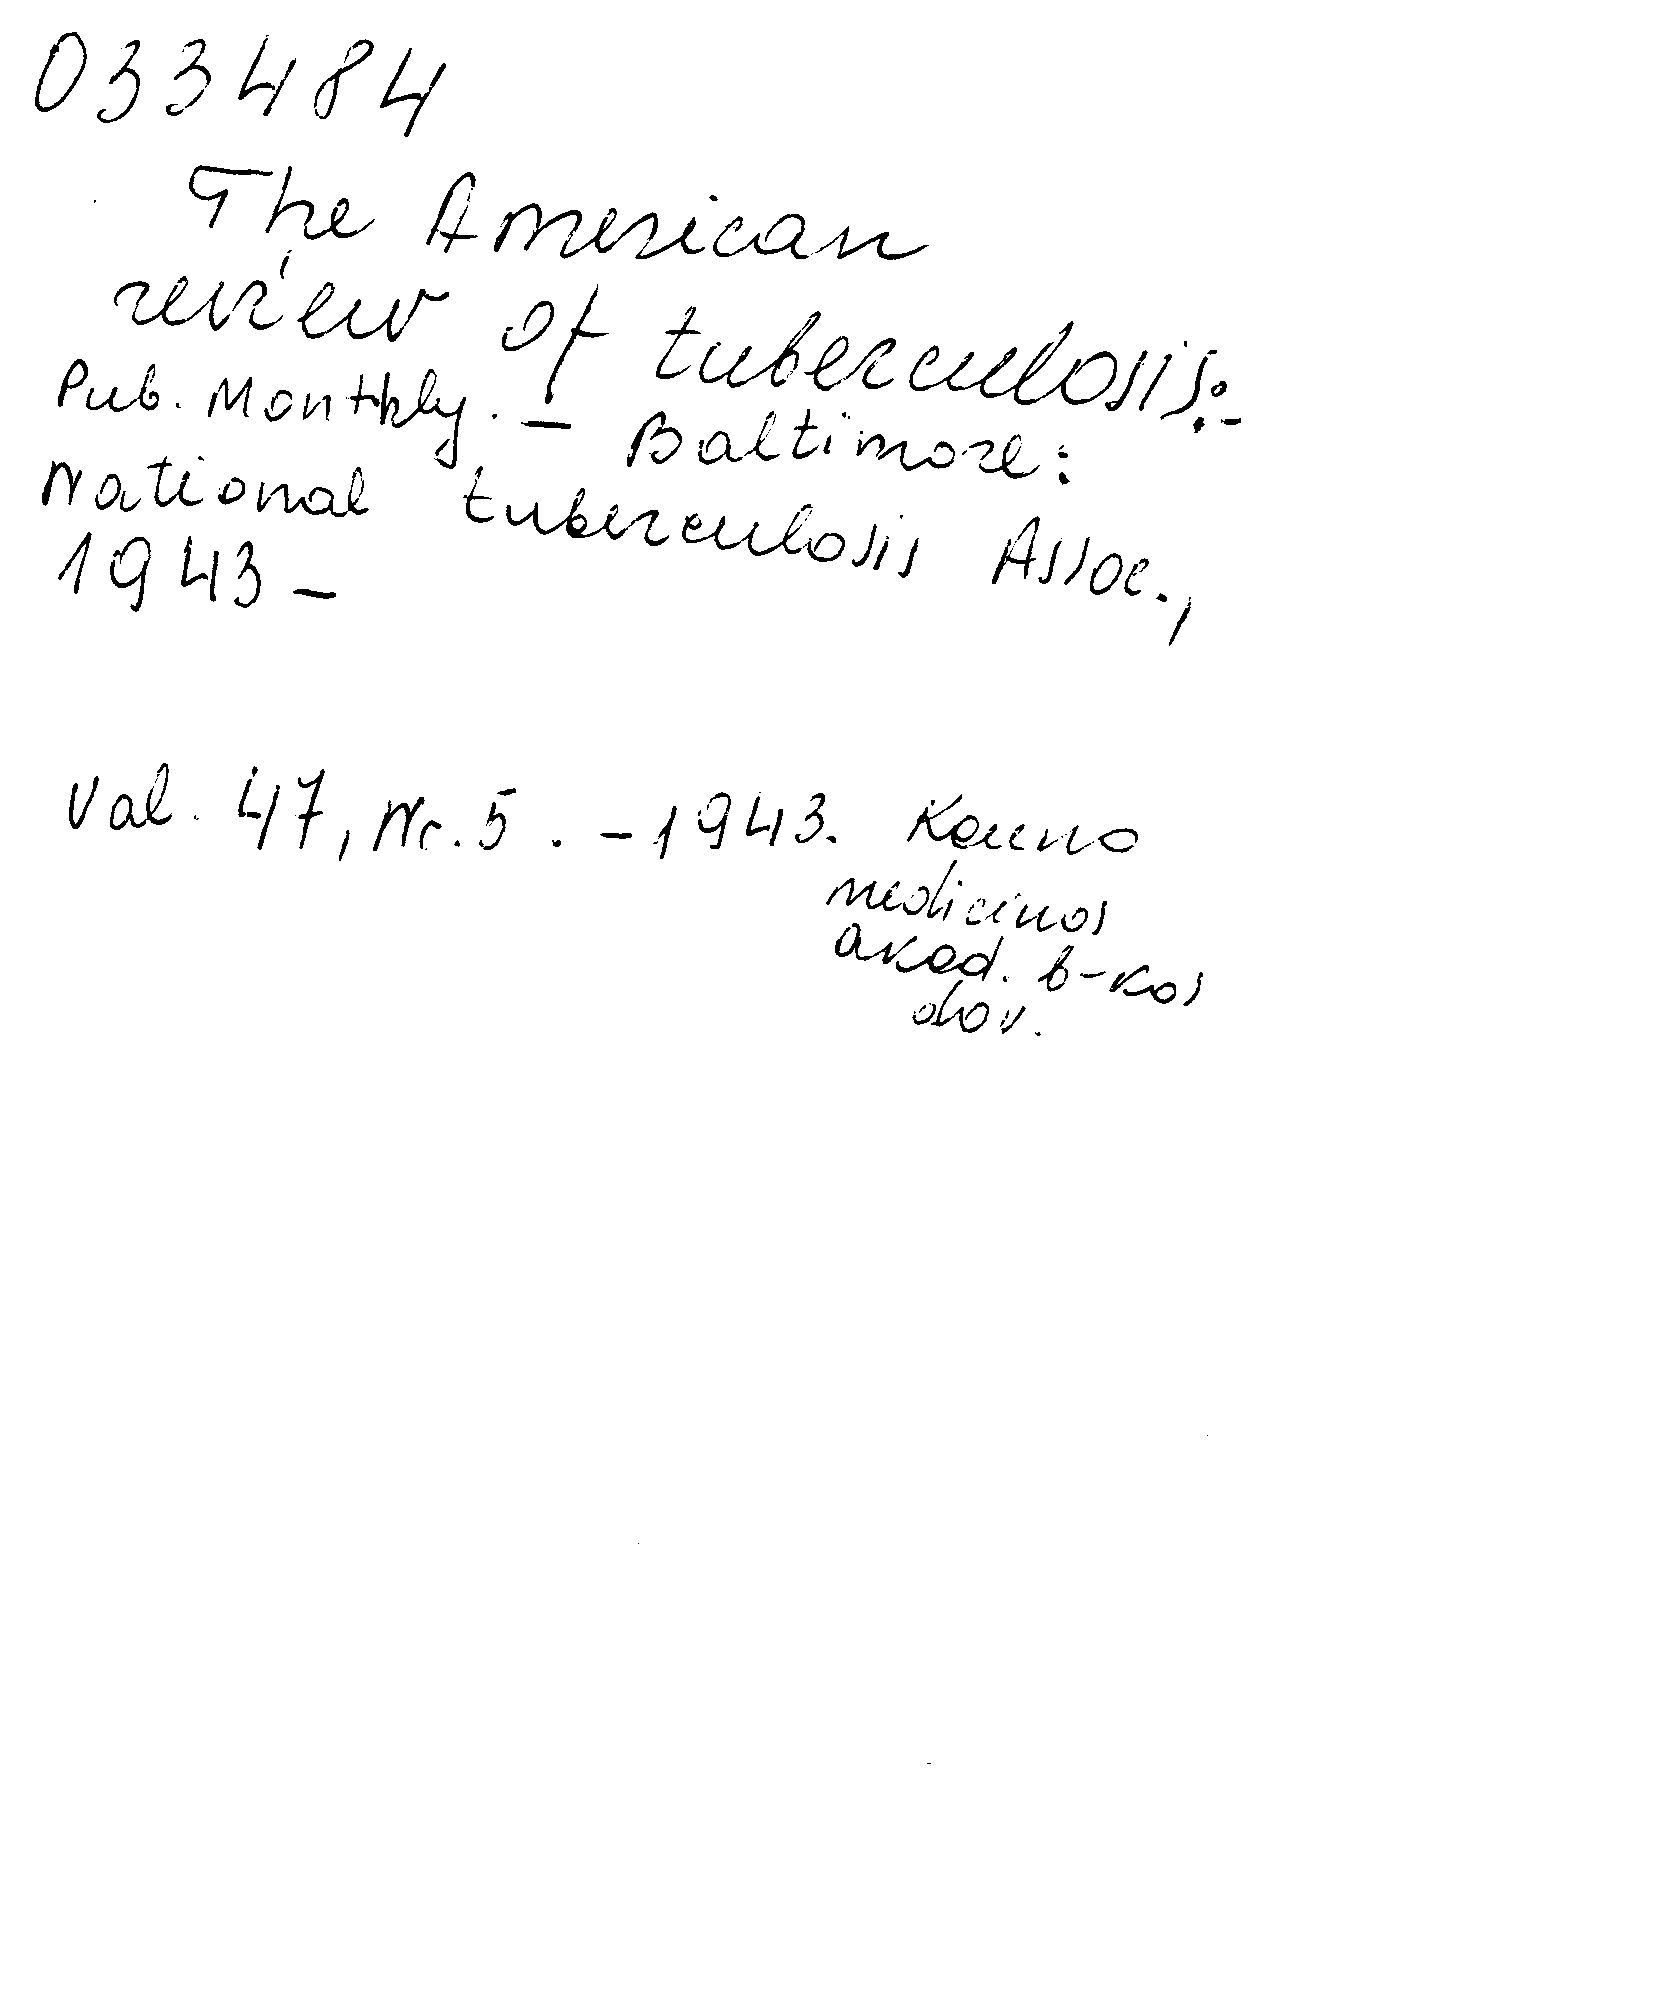 033484
The American
review of tuberculosis:.-
Pub. Monthly. – Baltimore:
National tuberculosis Assoc.,
1943 –
Val. 47, Nr. 5. – 1943. Kauno
medicinos
akad. b-kos
dov.